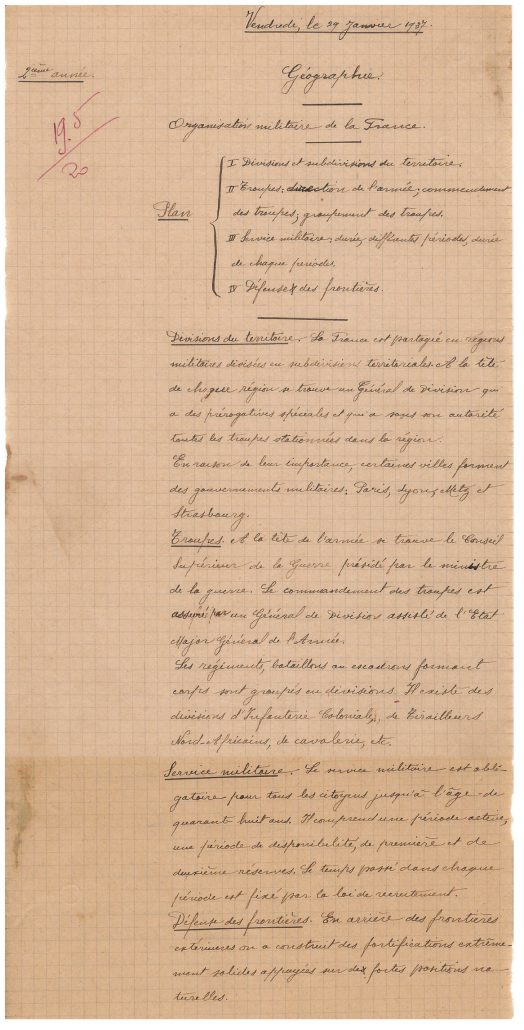 Vendredi, le 29 Janvier 1937.
2ième année.
Géographie.
19.5
20
Organisation militaire de la France.
Plan
I Divisions et subdivisions du territoire.
II Troupes: direction de l'armée; commandement
des troupes; groupement des troupes.
III Service militaire; durée, différentes périodes, durée
de chaque période.
IV Défense des frontières.
Divisions du territoire. La France est partagée en régions
militaires divisées en subdivisions territoriales. A la tête
de chaque région se trouve un Général de Division qui
a des prérogatives spéciales et qui a sous son autorité
toutes les troupes stationnées dans la région.
En raison de leur importance, certaines villes forment
des gouvernements militaires: Paris, Lyon, Metz et
Strasbourg.
Troupes. A la tête de l'armée se trouve le Conseil
Supérieur de la Guerre présidé par le ministre
de la guerre. Le commandement des troupes est
assuré par un Général de Division assisté de l'Etat
Major Général de l'Armée.
Les régiments, bataillons ou escadrons formant
corps sont groupés en divisions. Il existe des
divisions d'Infanterie Coloniale, de Tirailleurs
Nord-Africains, de cavalerie, etc.
Service militaire. Le service militaire est obli-
gatoire pour tous les citoyens jusqu'à l'âge de
quarant huit ans. Il comprend une période active,
une période de disponibilité, de première et de
deuxième réserves. Le temps passé dans chaque
période est fixé par la loi de recrutement.
Défense des frontières. En arrière des frontières
extérieures on a construit des fortifications extrême-
ment solides appuyées sur de fortes positions na-
turelles.